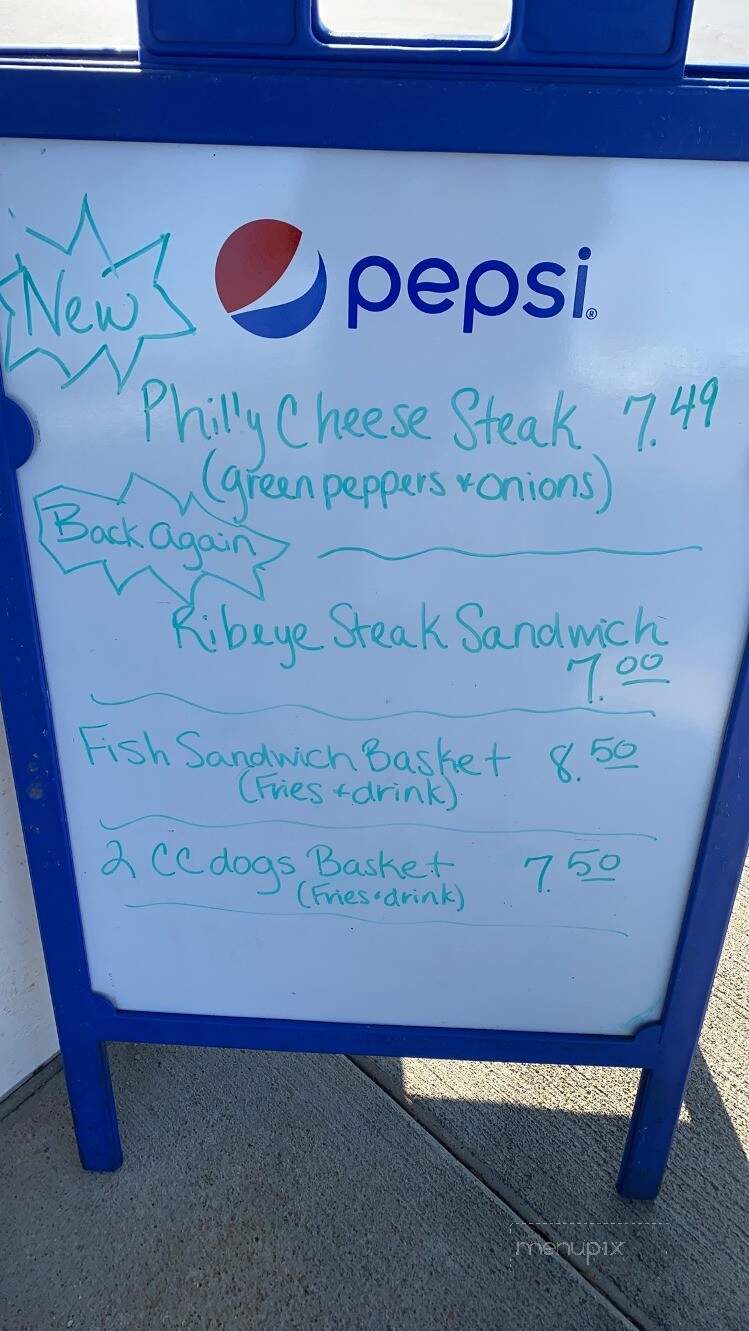 New
pepsi®
Philly Cheese Steak 7.49
(green peppers + onions)
Back again
Ribeye Steak Sandwich
7.00
Fish Sandwich Basket 8.50
(Fries + drink)
2 CC dogs Basket 7.50
(Fries + drink)
menupix